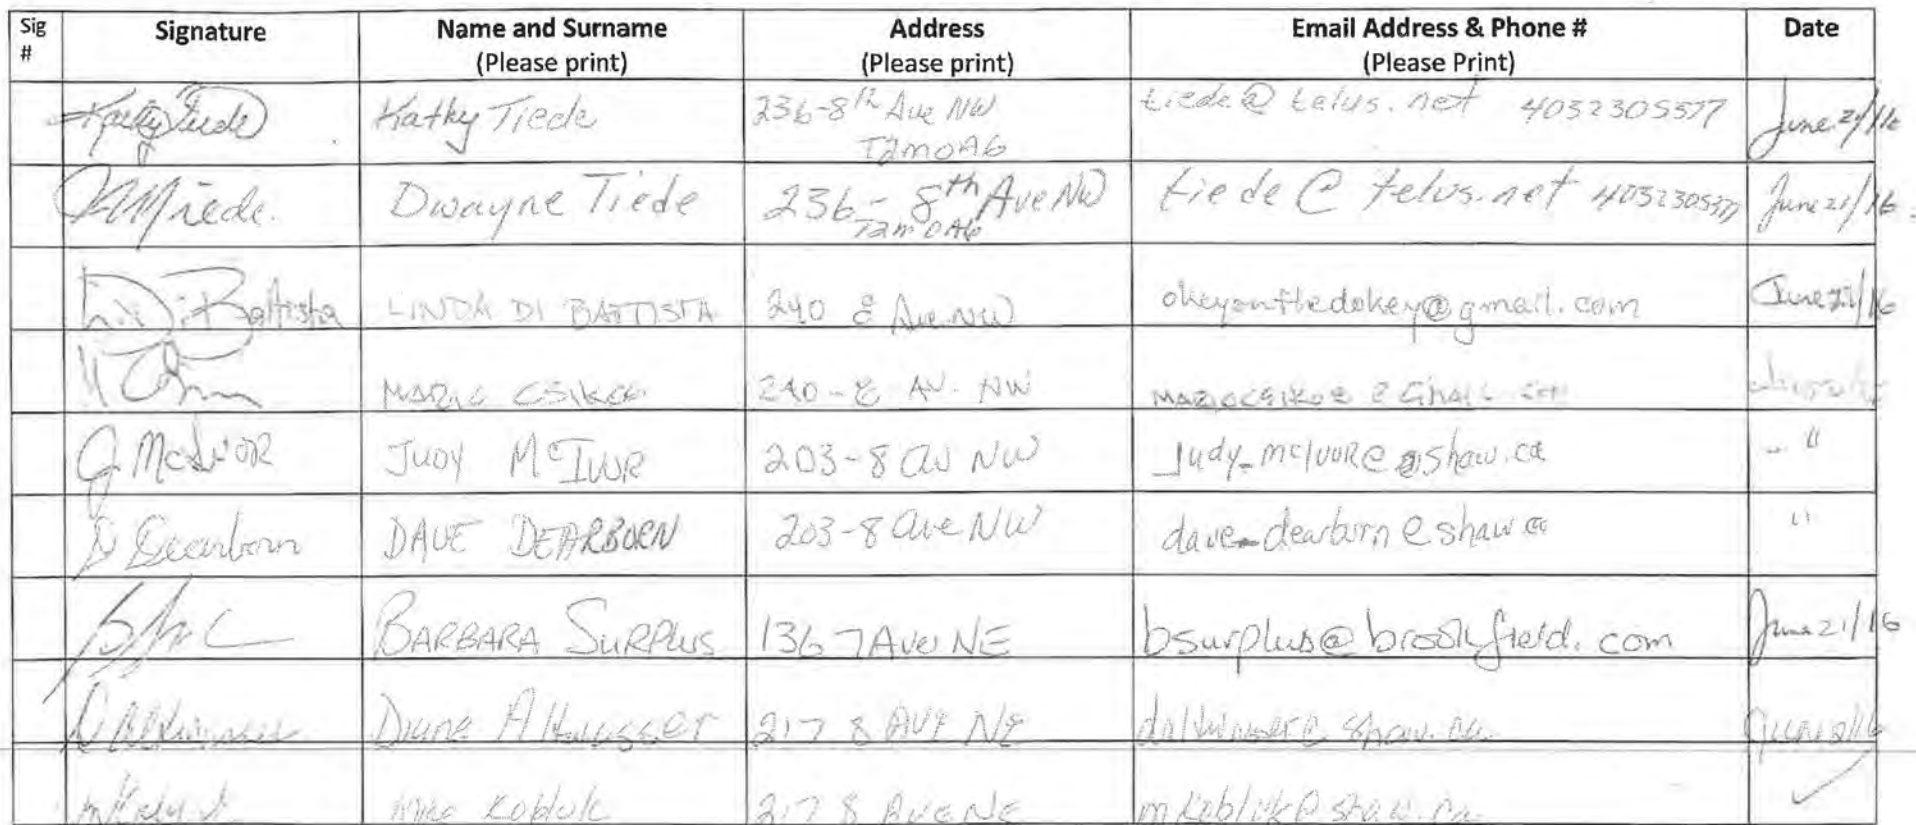 Sig # Signature Name and Surname (Please print) Address (Please print) Email Address & Phone # (Please Print) Date
Kathy Tiede Kathy Tiede 236-8th Ave NW T2M0A6 tiede@telus.net 4032305577 June 21/16
Tiede. Dwayne Tiede 236-8th Ave NW T2M0A6 tiede@telus.net 4032305577 June 21/16
Di Battista LINDA DI BATTISTA 240 8 Ave NW okeyonthedokey@gmail.com June 21/16
240-8 AV. NW
J McIvor JUDY McIVOR 203-8 av NW "
D Dearborn DAVE DEARBORN 203-8 Ave NW dave_dearborn@shaw.ca "
BARBARA SURPLUS 136 7 Ave NE bsurplus@brookfield.com June 21/16
Diane 217 8 AVE NE
Kobluk 217 8 AVE NE mkobluk@shaw.ca